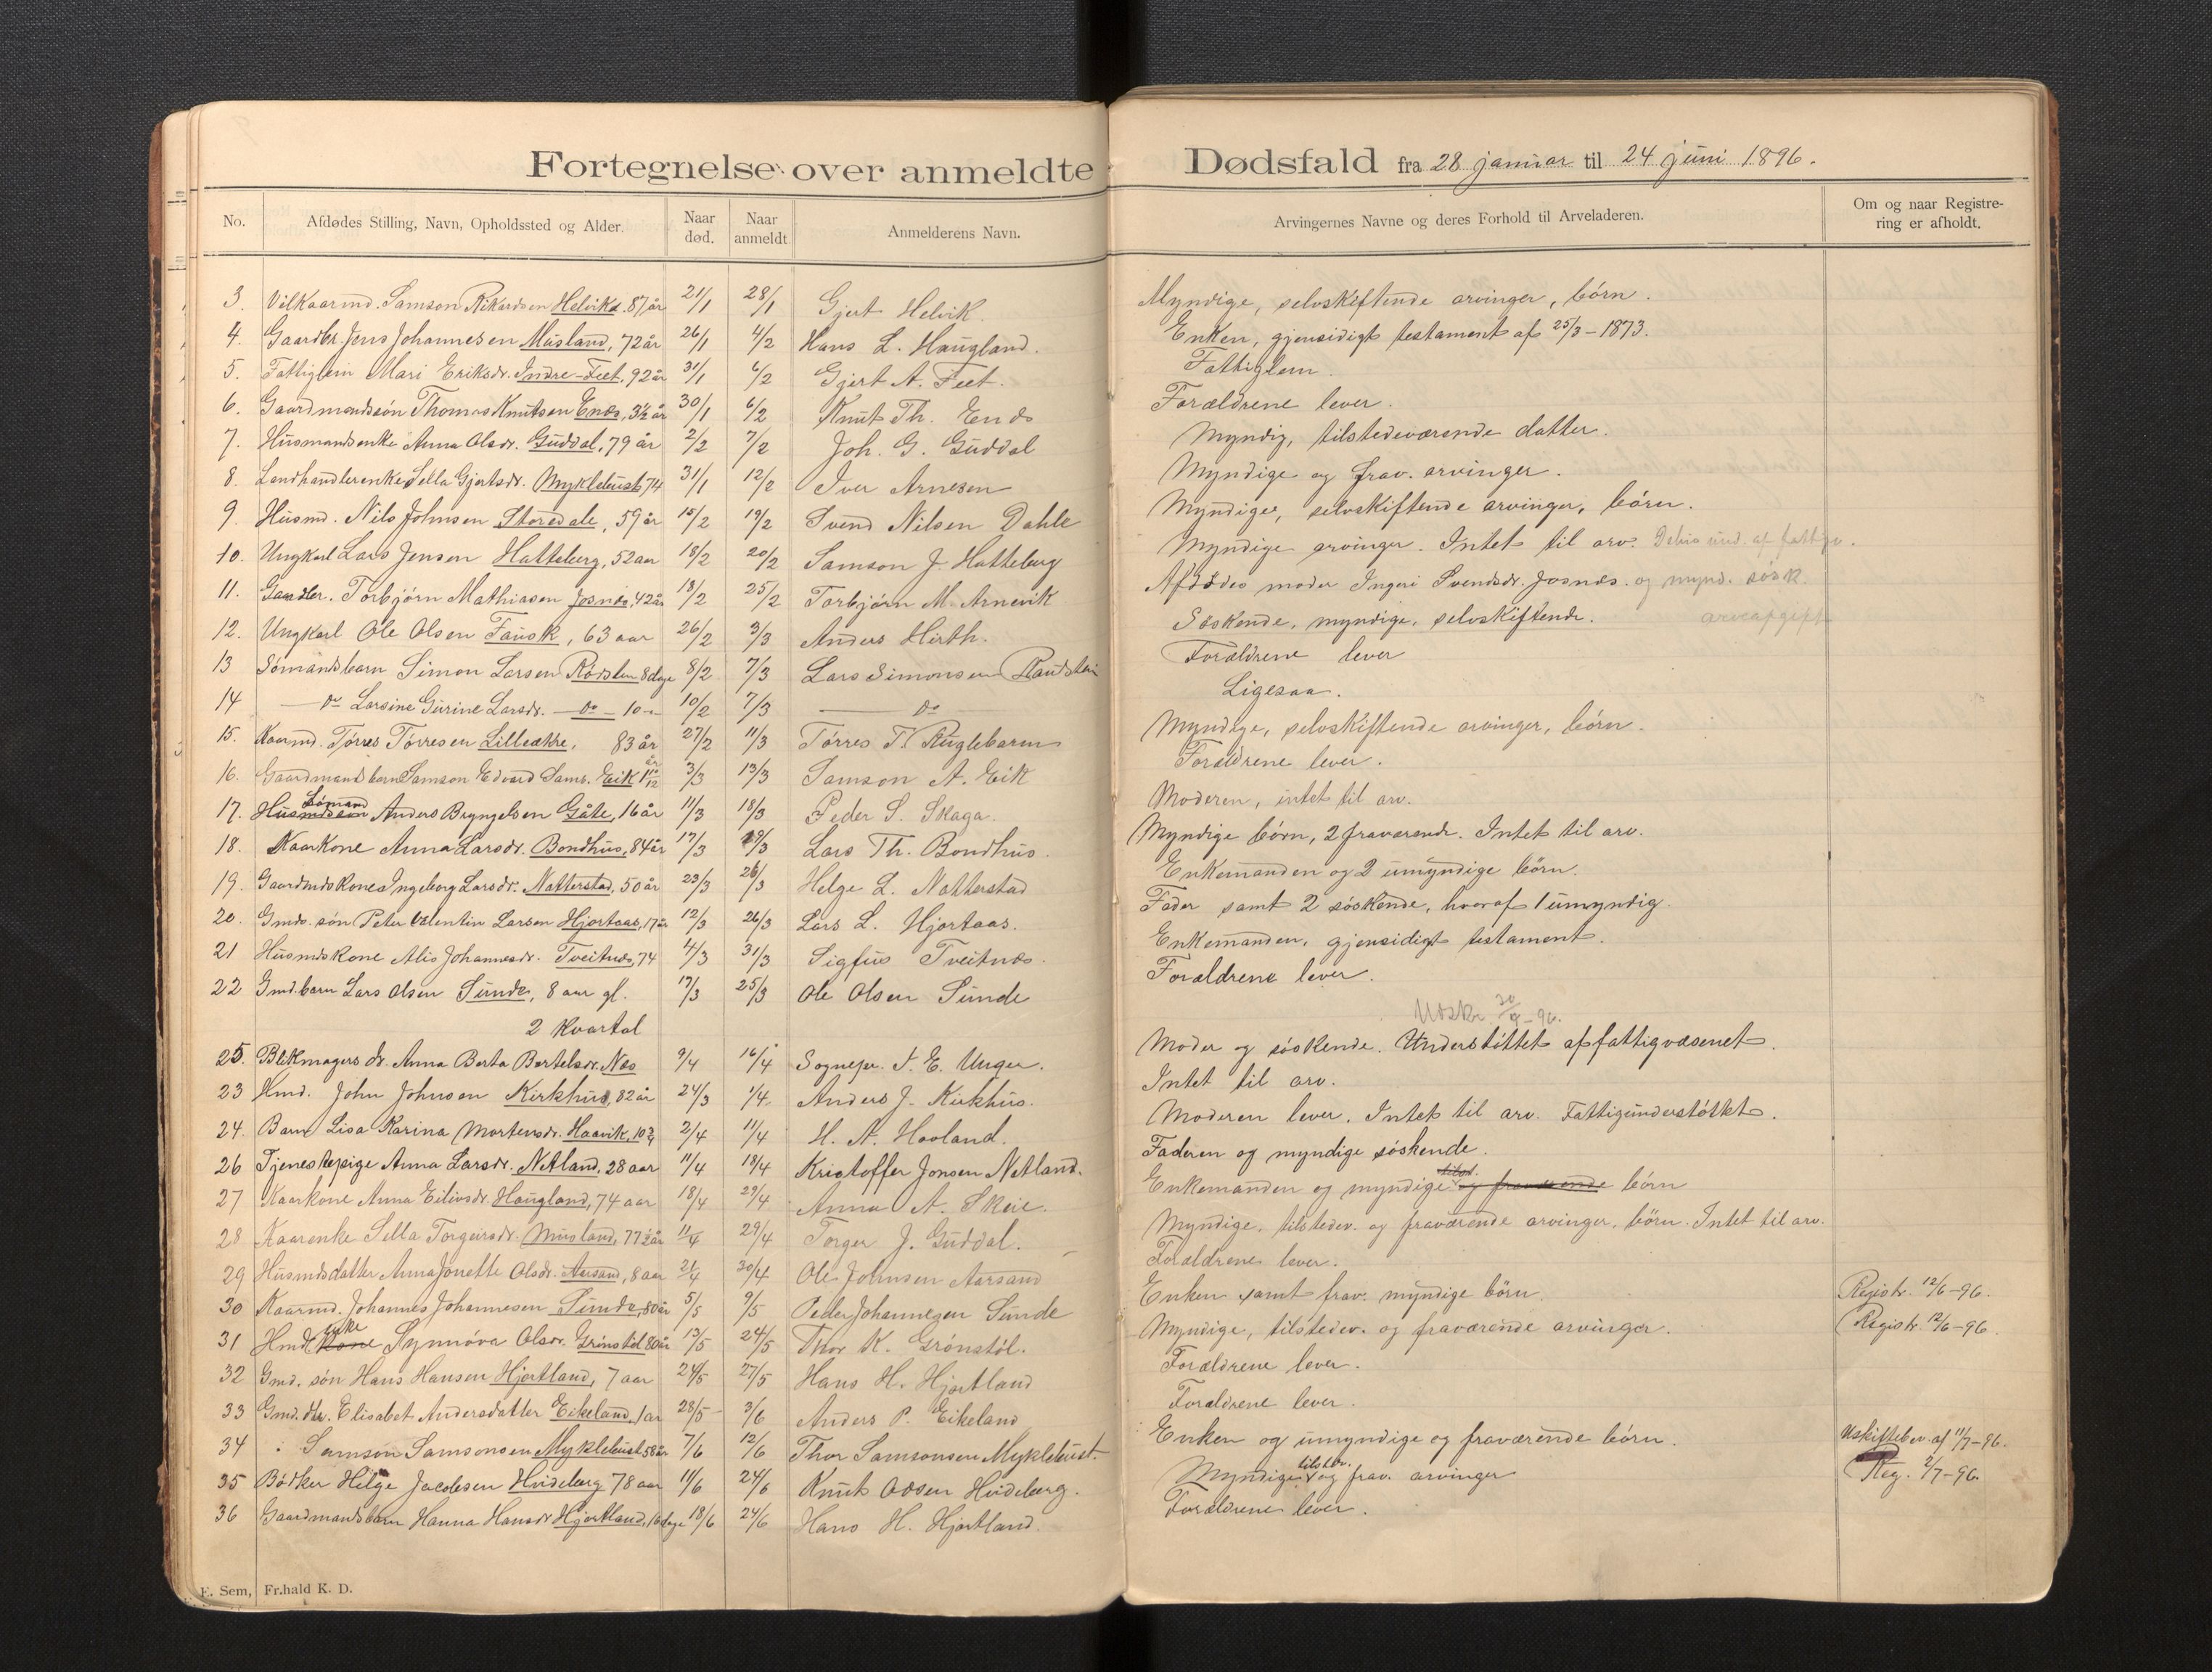 Fortegnelse over anmeldte Dødsfald fra 28 januar til 24 juni 1896.
No. Afdødes Stilling, Navn, Opholdssted og Alder. Naar død. Naar anmeldt Anmelderens Navn. Arvingernes Navne og deres Forhold til Arveladeren. Om og naar Registrering er afholdt.
3. Vilkaarmd. Samson Rikardsen Helvik. 87 år 21/1 28/1 Gjert Helvik. Myndige, selvskiftende arvinger, börn.
4. Gaardbr. Jens Johannesen Musland, 72 år 26/1 4/2 Hans L. Haugland. Enken, gjensidigt testament af 25/3 - 1873.
5. Fattiglem Mari Eriksdr. Indre-Feet. 92 år 31/1 6/2 Gjert A. Feet. Fattiglem.
6. Gaardmandssön Thomas Knutsen Enes, 3½ år 30/1 6/2 Knut Th. Enes Forældrene lever.
7. Husmandsenke Anna Olsdr. Guddal, 79 år 2/2 7/2 Joh. G. Guddal Myndig, tilstedeværende datter.
8. Landhandlerenke Sella Gjertsdr. Myklebust 74 31/1 12/2 Iver Arnesen Myndige og frav. arvinger.
9. Husmd. Nils Johnsen Storedale, 59 år 15/2 19/2 Svend Nilsen Dahle Myndige, selvskiftende arvinger, börn.
10. Ungkarl Lars Jensen Hatteberg, 52 aar 18/2 20/2 Samson J. Hatteberg Myndige arvinger. Intet til arv. und. af fattigv.
11. Gaardbr. Torbjörn Mathiasen Josnes, 42 år 18/2 25/2 Torbjörn M. Arnevik Afdödes moder Ingeri Svendsdr. Josnes. og mynd. søsk.
12. Ungkarl Ole Olsen Fausk, 63 aar 26/2 3/3 Anders Hirth. Söskende, myndige, selvskiftende. arveafgift
13 Sömandsbarn Simon Larsen Rödsten 8 dage 8/2 7/3 Lars Simonsen Raudstein Forældrene lever
14 — do Larsine Gurine Larsdr. — do — 10 — 10/2 7/3 — do — Ligesaa.
15. Kaarmd. Törres Törresen Lilleækre, 83 år 27/2 11/3 Törres T. Ruglebarm Myndige, selvskiftende arvinger, börn.
16. Gaardmandsbarn Samson Edvard Sams. Eik 1 10/12 år 3/3 13/3 Samson A. Eik Forældrene lever.
17. Husmdssön Sömand Anders Bryngelsen Gåte, 16 år 11/3 18/3 Peder S. Skaga. Moderen, intet til arv.
18. Kaarkone Anna Larsdr. Bondhus, 84 år 17/3 19/3 Lars Th. Bondhus. Myndige börn, 2 fraværende. Intet til arv.
19. Gaardmdskone Ingeborg Larsdr. Natterstad, 50 år 23/3 26/3 Helge L. Natterstad Enkemanden og 2 umyndige börn.
20. Gmds. sön Peter Valentin Larsen Hjortaas, 17 år 12/3 26/3 Lars L. Hjortaas. Fader samt 2 söskende, hvoraf 1 umyndig.
21 Husmdskone Alis Johannesdr. Tveitnes, 74 4/3 31/3 Sigfus Tveitnes. Enkemanden, gjensidigt testament.
22 Gmd. barn Lars Olsen Sunde, 8 aar gl. 17/3 25/3 Ole Olsen Sunde Forældrene lever.
2 Kvartal
Udskr. 30/9 - 96.
25. Blikmagers dr. Anna Berta Bertelsdr. Næs 9/4 16/4 Sognepr. J. E. Unger. Moder og söskende. Understöttet af fattigvæsenet.
23 Hmd. John Johnsen Kirkhus, 82 år 24/3 1/4 Anders J. Kirkhus. Intet til arv.
24. Barn Lisa Karina Mortensdr. Haavik, 10¾ 2/4 11/4 H. A. Hovland. Moderen lever. Intet til arv. Fattigunderstöttet.
26 Tjenestepige Anna Larsdr. Netland, 28 aar 11/4 18/4 Kristoffer Jonsen Netland. Faderen og myndige söskende.
27 Kaarkone Anna Eilivsdr. Haugland, 74 aar 18/4 29/4 Anna A. Skeie. Enkemanden og myndige tilst. og fraværende börn
28 Kaarenke Sella Torgersdr. Musland, 77½ år 11/4 29/4 Torger J. Guddal. Myndige, tilstedev. og fraværende arvinger, börn. Intet til arv.
29 Husmdsdatter Anna Jonette Olsdr. Aarsand, 8 aar 21/4 30/4 Ole Johnsen Aarsand Forældrene lever.
30 Kaarmd. Johannes Johannesen Sunde, 80 år 5/5 9/5 Peder Johannesen Sunde Enken samt frav. myndige börn. Registr. 12/6 - 96.
31 Hmd kone enke Synnöva Olsdr. Grönstöl 80 år 13/5 24/5 Thor K. Grönstöl. Myndige, tilstedev. og fraværende arvinger. Registr. 12/6 - 96.
32 Gmd. sön Hans Hansen Hjortland, 7 aar 24/5 27/5 Hans H. Hjortland Forældrene lever.
33 Gmd. dtr. Elisabet Andersdatter Eikeland, 1 ar 28/5 3/6 Anders P. Eikeland Forældrene lever.
34 Samson Samsonsen Myklebust 58 år 7/6 12/6 Thor Samsonsen Myklebust. Enken og umyndige og fraværende börn. Uskiftebev. af 11/7 - 96.
35 Bödker Helge Jacobsen Hvideberg 78 aar 11/6 24/6 Knut Odsen Hvideberg. Myndige tilstev. og frav. arvinger Reg. 2/7 - 96.
36 Gaardmandsbarn Hanna Hansdr Hjortland, 10 dage 18/6 24/6 Hans H. Hjortland. Forældrene lever.
E. Sem, Fr.hald K. D.